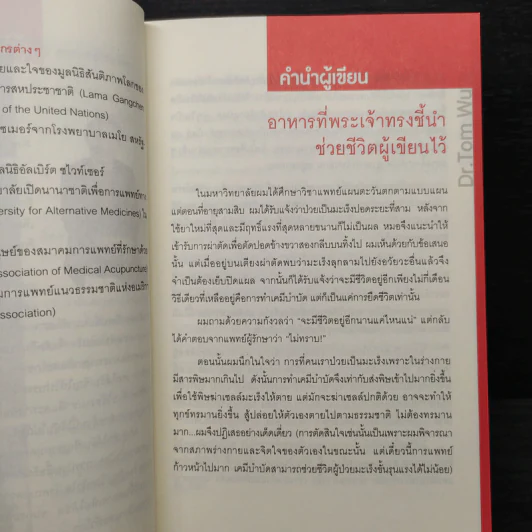 กรต่างๆ
ยและใจของมูลนิธิสันติภาพโลกของ
การสหประชาชาติ (Lama Gangchen
of the United Nations)
ซเมอร์จากโรงพยาบาลเมโย สหรัฐ
ลนิธิอัลเบิร์ต ชไวท์เซอร์
ยาลัยเปิดนานาชาติเพื่อการแพทย์ทาง
versity for Alternative Medicines) ใน
นษย์ของสมาคมการแพทย์ที่รักษาด้วย
ssociation of Medical Acupuncture
มการแพทย์แนวธรรมชาติแห่งอเมริกา
Association)
คำนำผู้เขียน
อาหารที่พระเจ้าทรงชี้นำ
ช่วยชีวิตผู้เขียนไว้
Dr.Tom Wu
ในมหาวิทยาลัยผมได้ศึกษาวิชาแพทย์แผนตะวันตกตามแบบแผน
แต่ตอนที่อายุสามสิบ ผมได้รับแจ้งว่าป่วยเป็นมะเร็งปอดระยะที่สาม หลังจาก
ใช้ยาใหม่ที่สุดและมีฤทธิ์แรงที่สุดหลายขนานก็ไม่เป็นผล หมอจึงแนะนำให้
เข้ารับการผ่าตัดเพื่อตัดปอดข้างขวาสองกลีบบนทิ้งไป ผมเห็นด้วยกับข้อเสนอ
นั้น แต่เมื่ออยู่บนเตียงผ่าตัดพบว่ามะเร็งลุกลามไปยังอวัยวะอื่นแล้วจึง
จำเป็นต้องเย็บปิดแผล จากนั้นก็ได้รับแจ้งว่าจะมีชีวิตอยู่อีกเพียงไม่กี่เดือน
วิธีเดียวที่เหลืออยู่คือการทำเคมีบำบัด แต่ก็เป็นแค่การยืดชีวิตเท่านั้น
ผมถามด้วยความกังวลว่า “จะมีชีวิตอยู่อีกนานแค่ไหนแน่” แต่กลับ
ได้คำตอบจากแพทย์ผู้รักษาว่า “ไม่ทราบ!”
ตอนนั้นผมนึกในใจว่า การที่คนเราป่วยเป็นมะเร็งเพราะในร่างกาย
มีสารพิษมากเกินไป ดังนั้นการทำเคมีบำบัดจึงเท่ากับส่งพิษเข้าไปมากยิ่งขึ้น
เพื่อใช้พิษฆ่าเซลล์มะเร็งให้ตาย แต่มักจะฆ่าเซลล์ปกติด้วย อาจจะทำให้
ทุกข์ทรมานยิ่งขึ้น สู้ปล่อยให้ตัวเองตายไปตามธรรมชาติ ไม่ต้องทรมาน
มาก...ผมจึงปฏิเสธอย่างเด็ดเดี่ยว (การตัดสินใจเช่นนั้นเป็นเพราะผมพิจารณา
จากสภาพร่างกายและจิตใจของตัวเองในขณะนั้น แต่เดี๋ยวนี้การแพทย์
ก้าวหน้าไปมาก เคมีบำบัดสามารถช่วยชีวิตผู้ป่วยมะเร็งขั้นรุนแรงได้ไม่น้อย)